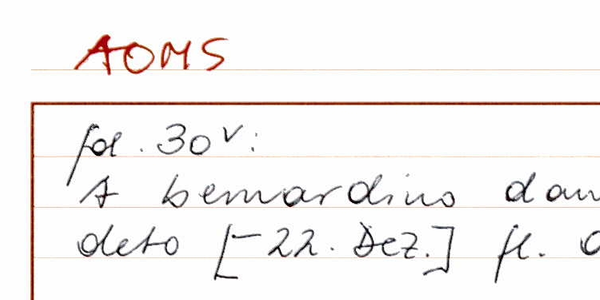 AOMS
fol. 30v:
A bernardino dan
deto [= 22. Dez.] fl.